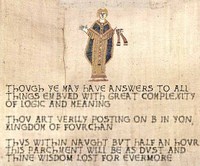 THOUGH YE MAY HAVE ANSWERS TO ALL
THINGS EMBUED WITH GREAT COMPLEXITY
OF LOGIC AND MEANING
THOU ART VERILY POSTING ON B IN YON,
KINGDOM OF FOURCHAN
THUS WITHIN NAUGHT BUT HALF AN HOUR
THIS PARCHMENT WILL BE AS DUST AND
THINE WISDOM LOST FOR EVERMORE